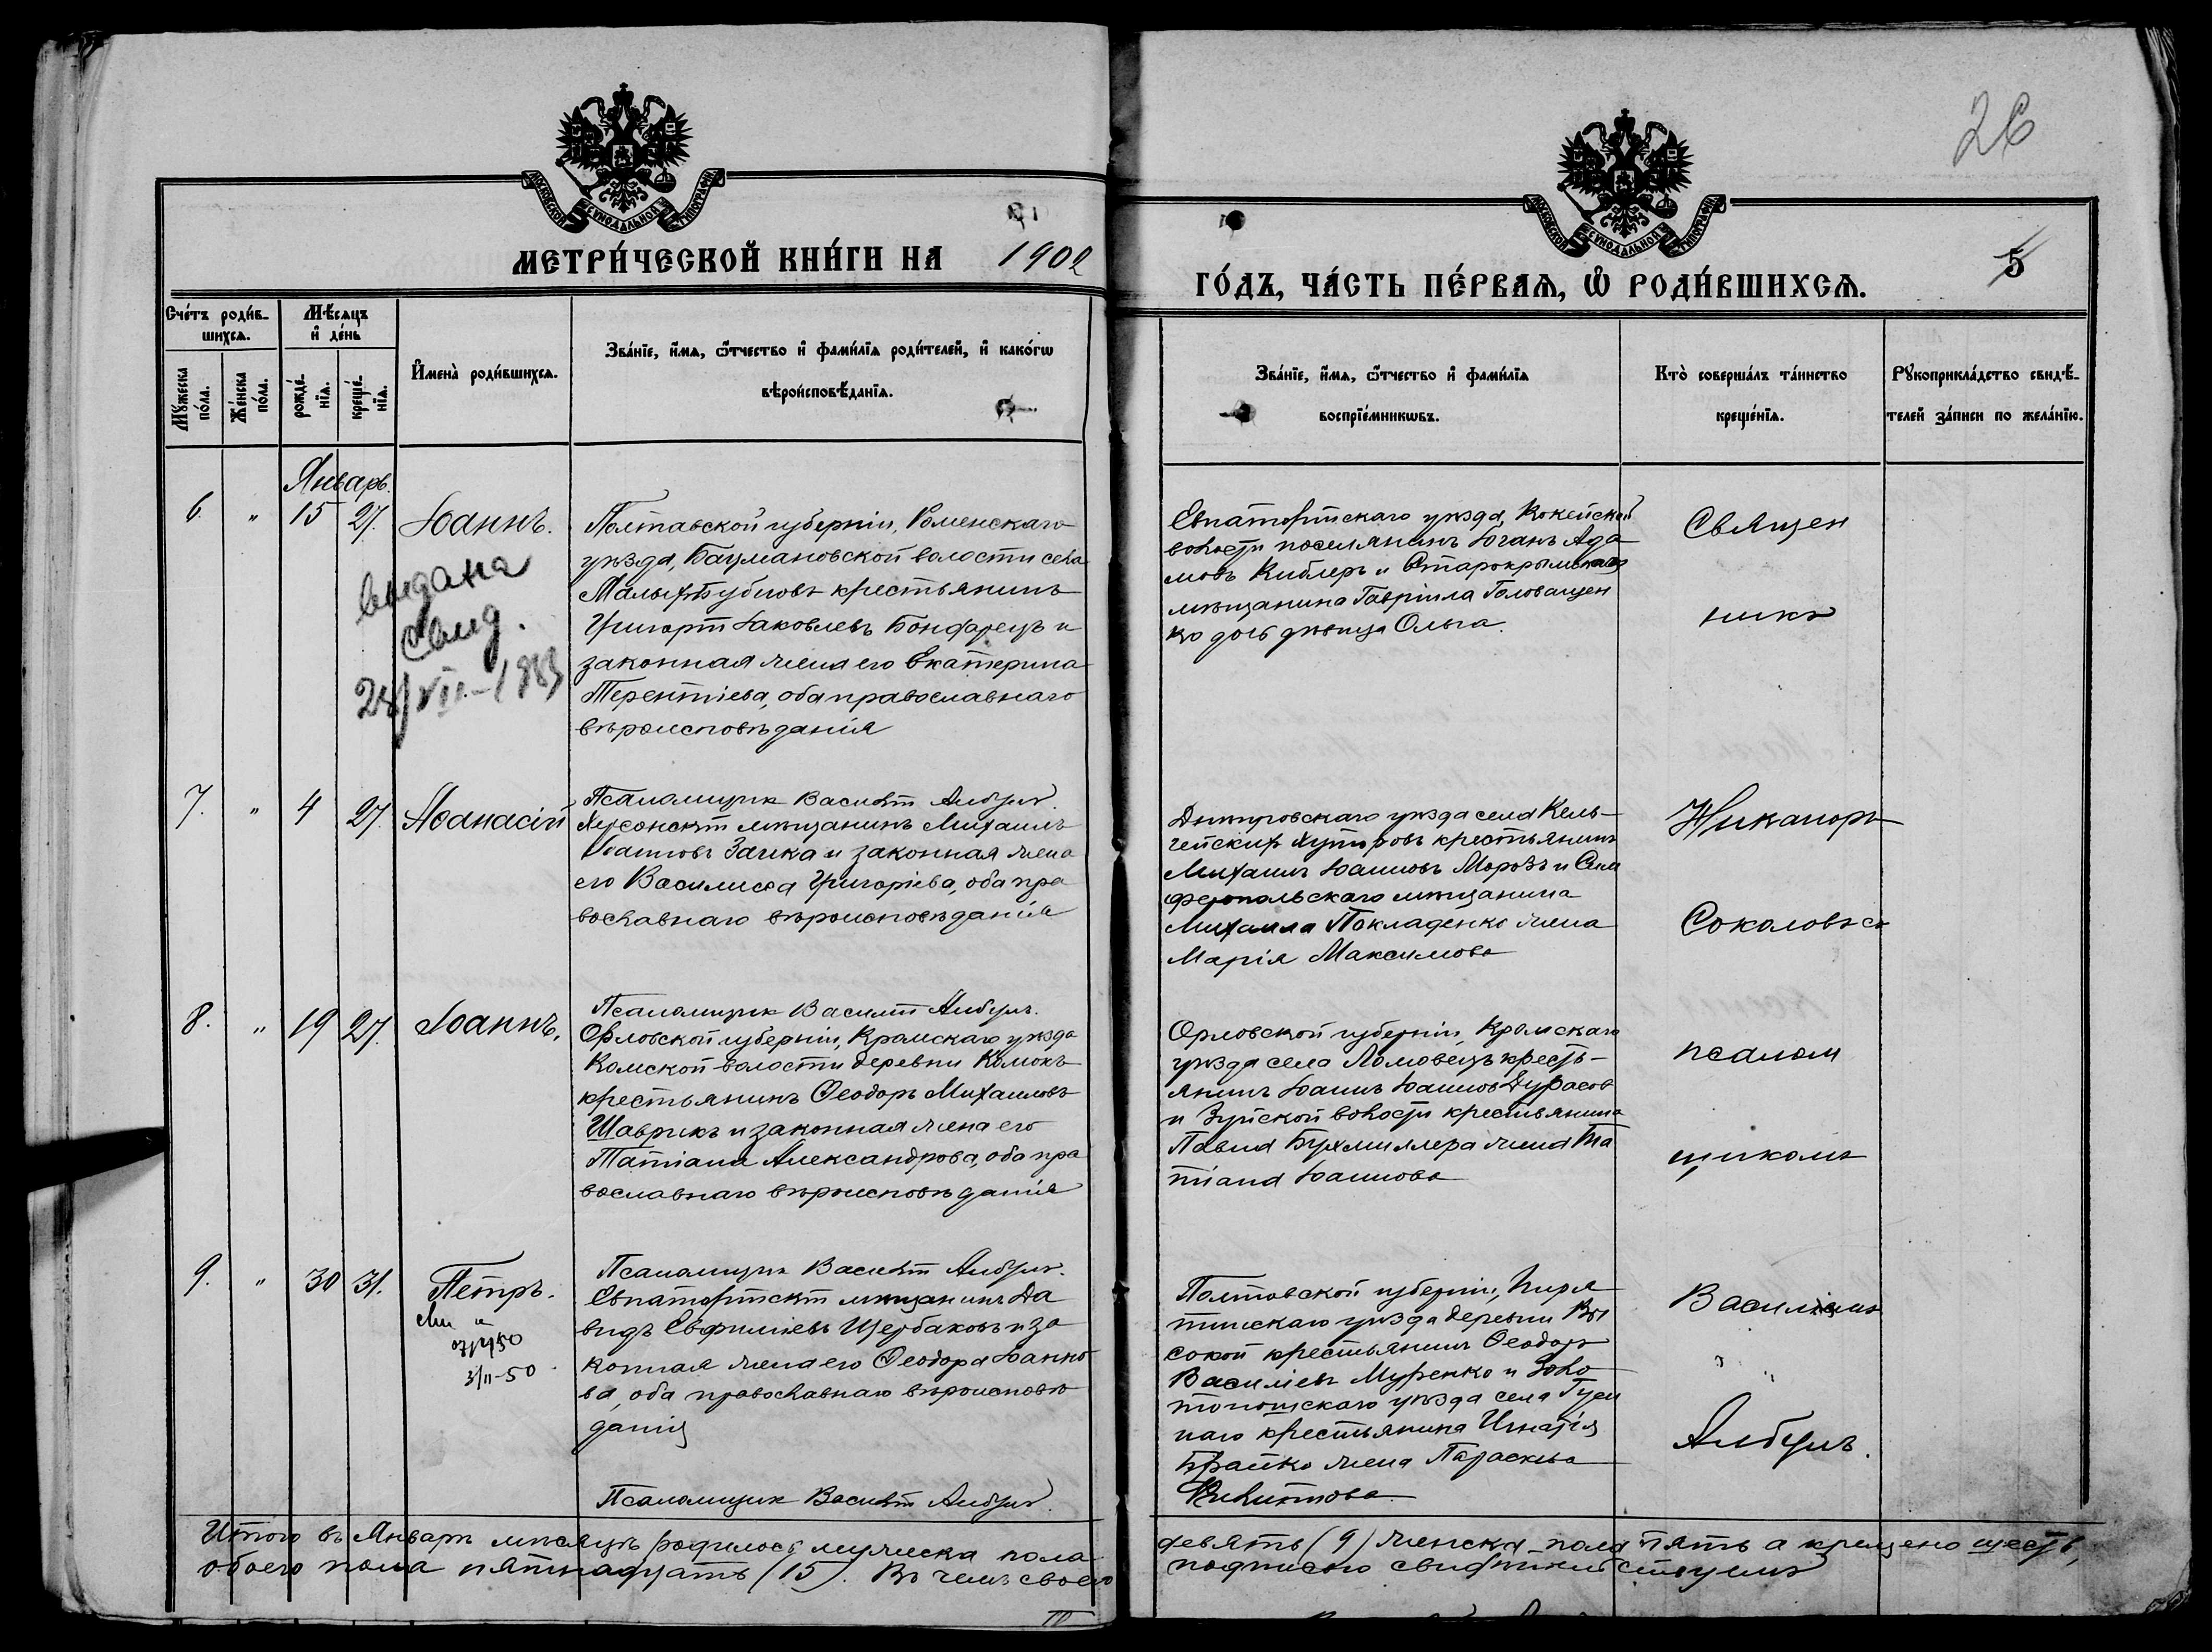 26
МОСКОВСКОЙ СѴНОДАЛЬНОЙ ТИПОГРАФІИ
МЕТРИ́ЧЕСКОЙ КНИ́ГИ НА 1902
МОСКОВСКОЙ СѴНОДАЛЬНОЙ ТИПОГРАФІИ
ГО́ДЪ, ЧА́СТЬ ПЕ́РВАѦ, Ѡ РОДИ́ВШИХСѦ.
5
Сче́тъ роди́в-
шихсѧ.
Мꙋ́жеска
по́ла.
Же́нска
по́ла.
Мѣ́сѧцъ
и҆ де́нь
рожде́-
нїѧ.
креще́-
нїѧ.
И҆мена̀ роди́вшихсѧ.
Зва́нїе, и҆́мѧ, ѻ҆́тчество и҆ фами́лїѧ роди́телей, и҆ како́гѡ
вѣроисповѣ́данїѧ.
Зва́нїе, и҆́мѧ, ѻ҆́тчество и҆ фами́лїѧ
воспрїе́мникѡвъ.
Кто̀ соверша́лъ та́инство
креще́нїѧ.
Рꙋкоприкла́дство свидѣ́-
телей за́писи по жела́нїю.
Январь.
6. " 15 27. Іоаннъ.
выдана
Свид.
Полтавской губерніи, Роменскаго
уѣзда, Бацмановской волости села
Малыхъ Бубновъ крестьянинъ
Григорій Іаковлевъ Бондарецъ и
законная жена его Екатерина
Терентіева, оба православнаго
вѣроисповѣданія
Псаломщик Василій Албулъ.
Евпаторійскаго уѣзда, Кокейской
волости поселянинъ Іоганъ Ада
мовъ Киблеръ и Старокрымскаго
мѣщанина Гавріила Головащен
ко дочь дѣвица Ольга.
Священ
никъ
7. " 4 27. Аѳанасій
Херсонскій мѣщанинъ Михаилъ
Іоанновъ Заика и законная жена
его Василисса Григоріева, оба пра
вославнаго вѣроисповѣданія
Псаломщик Василій Албулъ.
Днѣпровскаго уѣзда села Кель-
гейскихъ Хуторовъ крестьянинъ
Михаилъ Іоанновъ Морозъ и Сим
феропольскаго мѣщанина
Михаила Покладенко жена
Марія Максимова
Никаноръ
Соколовъ съ
8. " 19 27. Іоаннъ.
Орловской губерніи, Кромскаго уѣзда
Комской волости деревни Комокъ
крестьянинъ Ѳеодоръ Михаиловъ
Шаврикъ и законная жена его
Татіана Александрова, оба пра
вославнаго вѣроисповѣданія
Псаломщик Василій Албулъ.
Орловской губерніи, Кромскаго
уѣзда села Ломовецъ кресть-
янинъ Іоаннъ Іоанновъ Дурасов
и Зуйской волости крестьянина
Павла Бухмиллера жена Та
тіана Іоаннова
псалом
щикомъ
9. " 30 31. Петръ.
3/II-50
Евпаторійскій мѣщанинъ Да
видъ Евфиміевъ Щербаковъ и за
конная жена его Ѳеодора Іанно
ва, оба православнаго вѣроисповѣ
данія
Псаломщик Василій Албулъ.
Полтавской губерніи, Пиря
тинскаго уѣзда деревни Вы
сокой крестьянинъ Ѳеодоръ
Василіевъ Муренко и Золо
тоношскаго уѣзда села
наго крестьянина Игнатія
Брайко жена Параскева
Василіемъ
Албулъ.
Итого въ Январѣ мѣсяцѣ родилось мужеска пола девять (9) женска пола пять а крещено шесть,
обоего пола пятнадцать (15). Въ чемъ своею подписью свидѣтельствуемъ